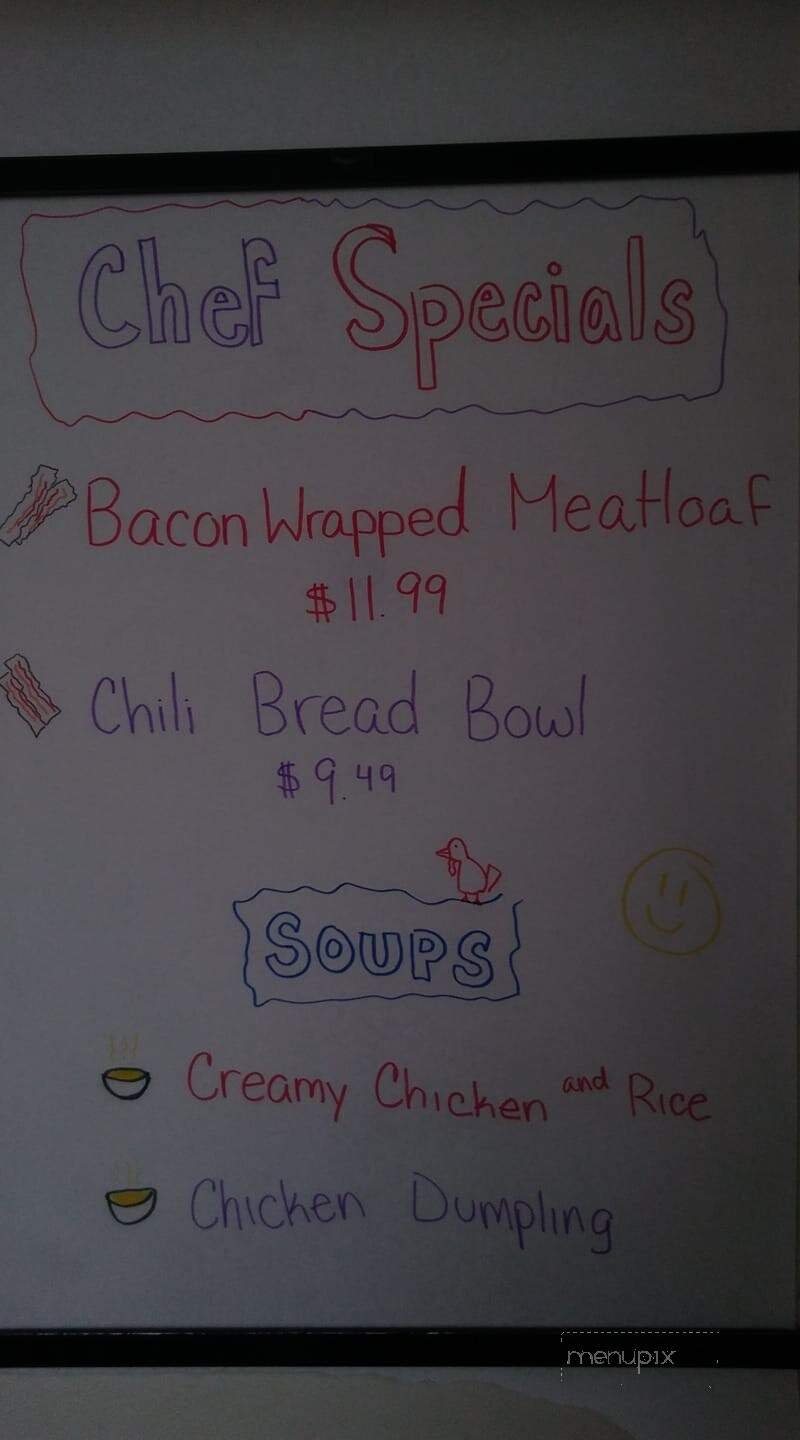 Chef Specials
Bacon Wrapped Meatloaf
$11.99
Chili Bread Bowl
$9.49
SOUPS
Creamy Chicken and Rice
Chicken Dumpling
menupix